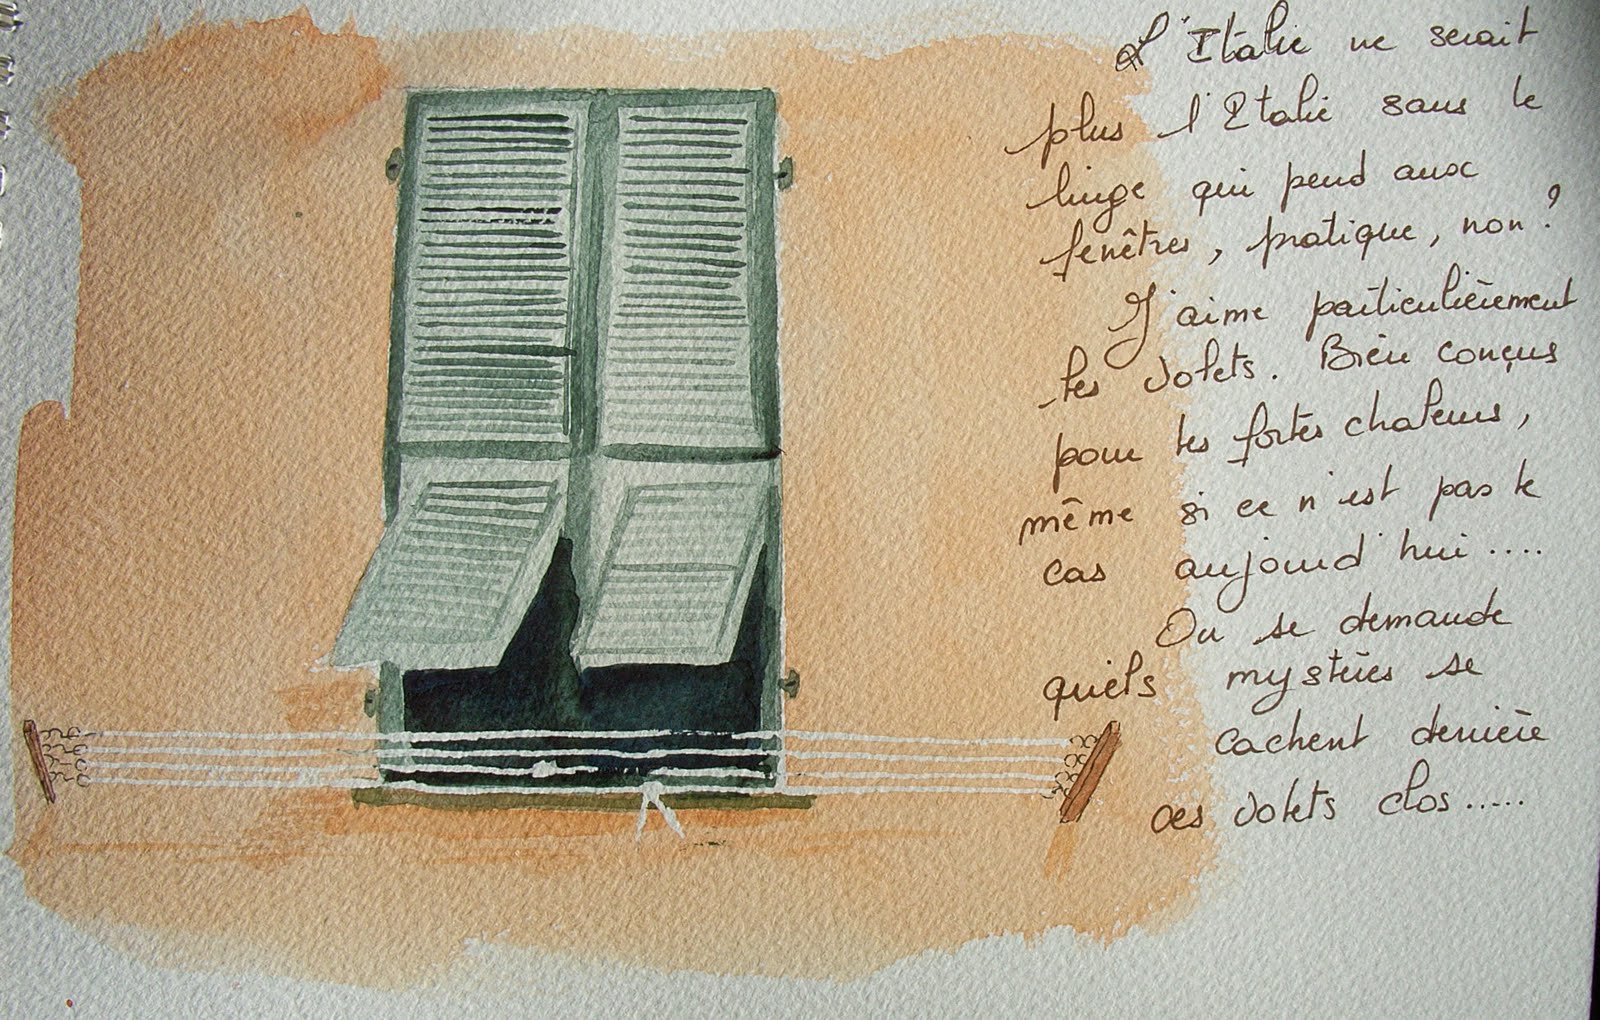 L'Italie ne serait
plus l'Italie sans le
linge qui pend aux
fenêtres, pratique, non ?
J'aime particulièrement
les volets. Bien conçus
pour les fortes chaleurs,
même si ce n'est pas le
cas aujourd'hui....
On se demande
quels mystères se
cachent derrière
ces volets clos.....